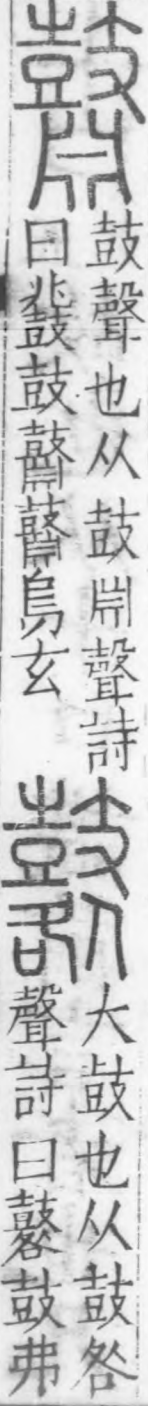 鼘
鼓聲也从鼓𣶒聲詩
曰鼗鼓鼘鼘烏玄
鼛
大鼓也从鼓咎
聲詩曰鼛鼓弗